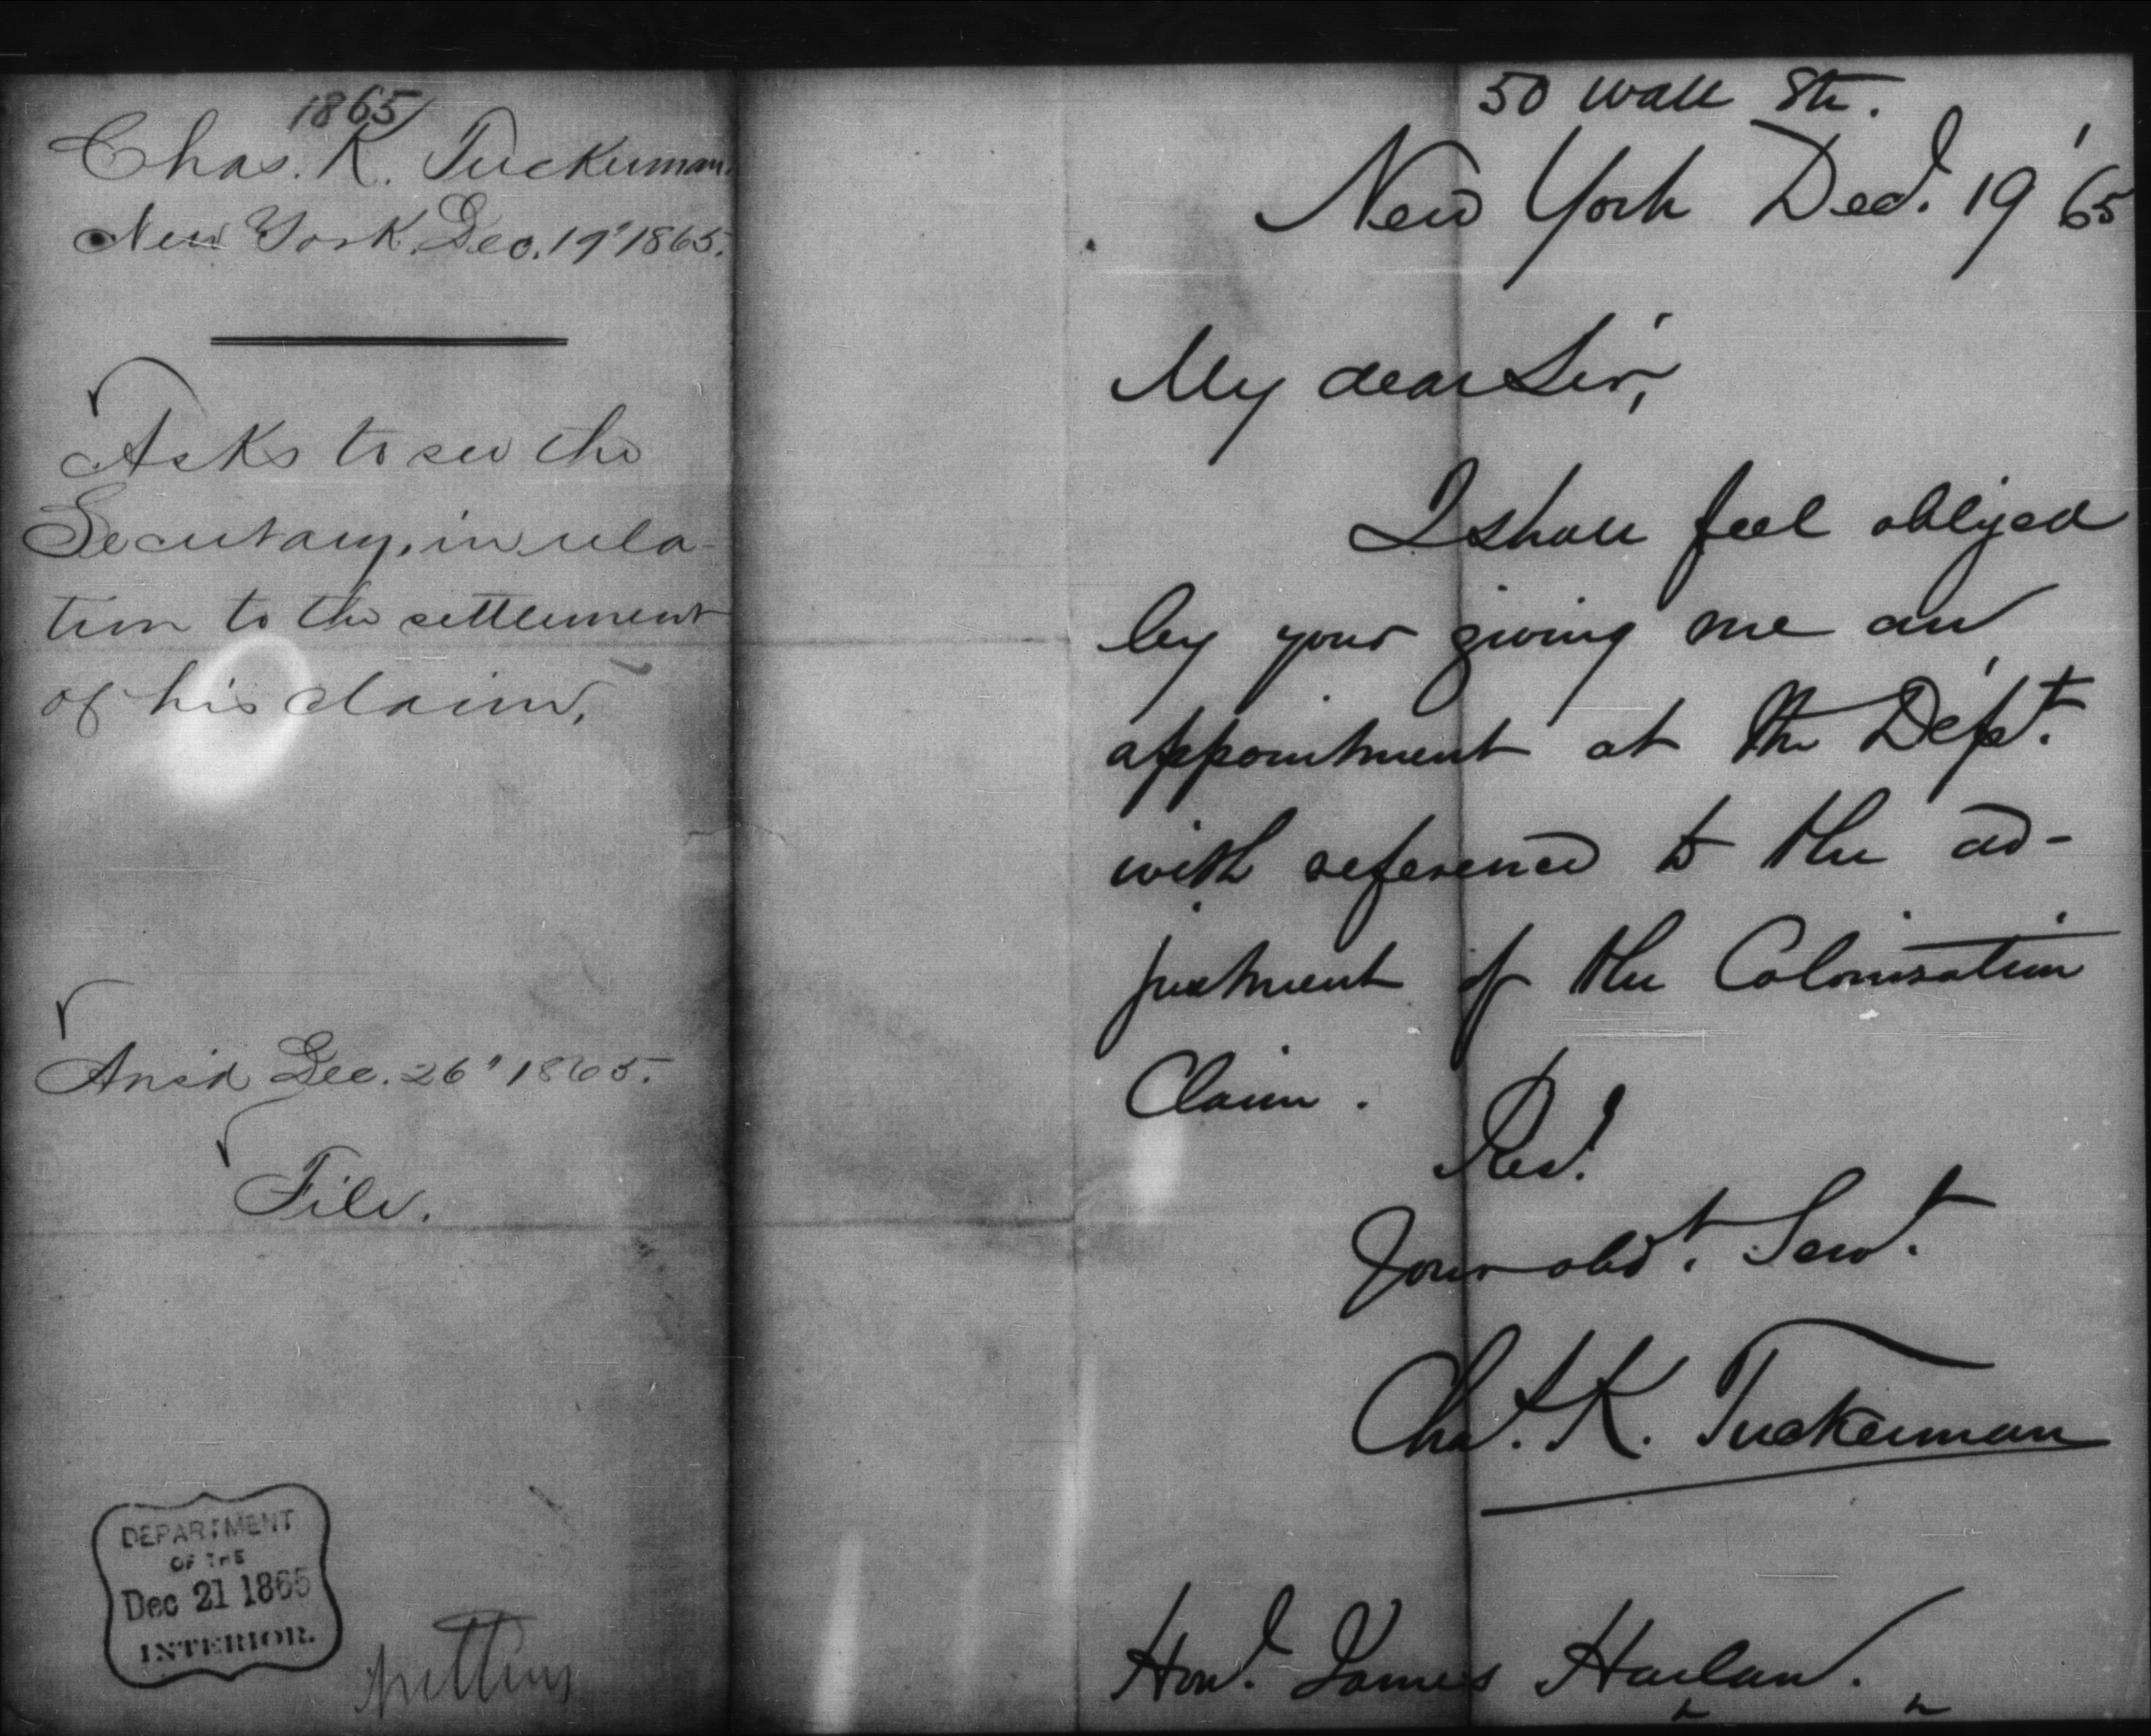 1865
Chas. K. Tuckerman.
New York, Dec. 19" 1865.
Asks to see the
Secretary, in rela-
tion to the settlement
of his claim.
Ans'd Dec. 26" 1865.
File.
DEPARTMENT
OF THE
Dec 21 1865
INTERIOR.
50 Wall Str.
New York Decr. 19 '65
My dear Sir,
I shall feel obliged
by your giving me an
appointment at the Dept.
with reference to the ad-
justment of the Colonisation
Claim.
Res.
Your obdt. Servt.
Chas. K. Tuckerman
Hon. James Harlan.